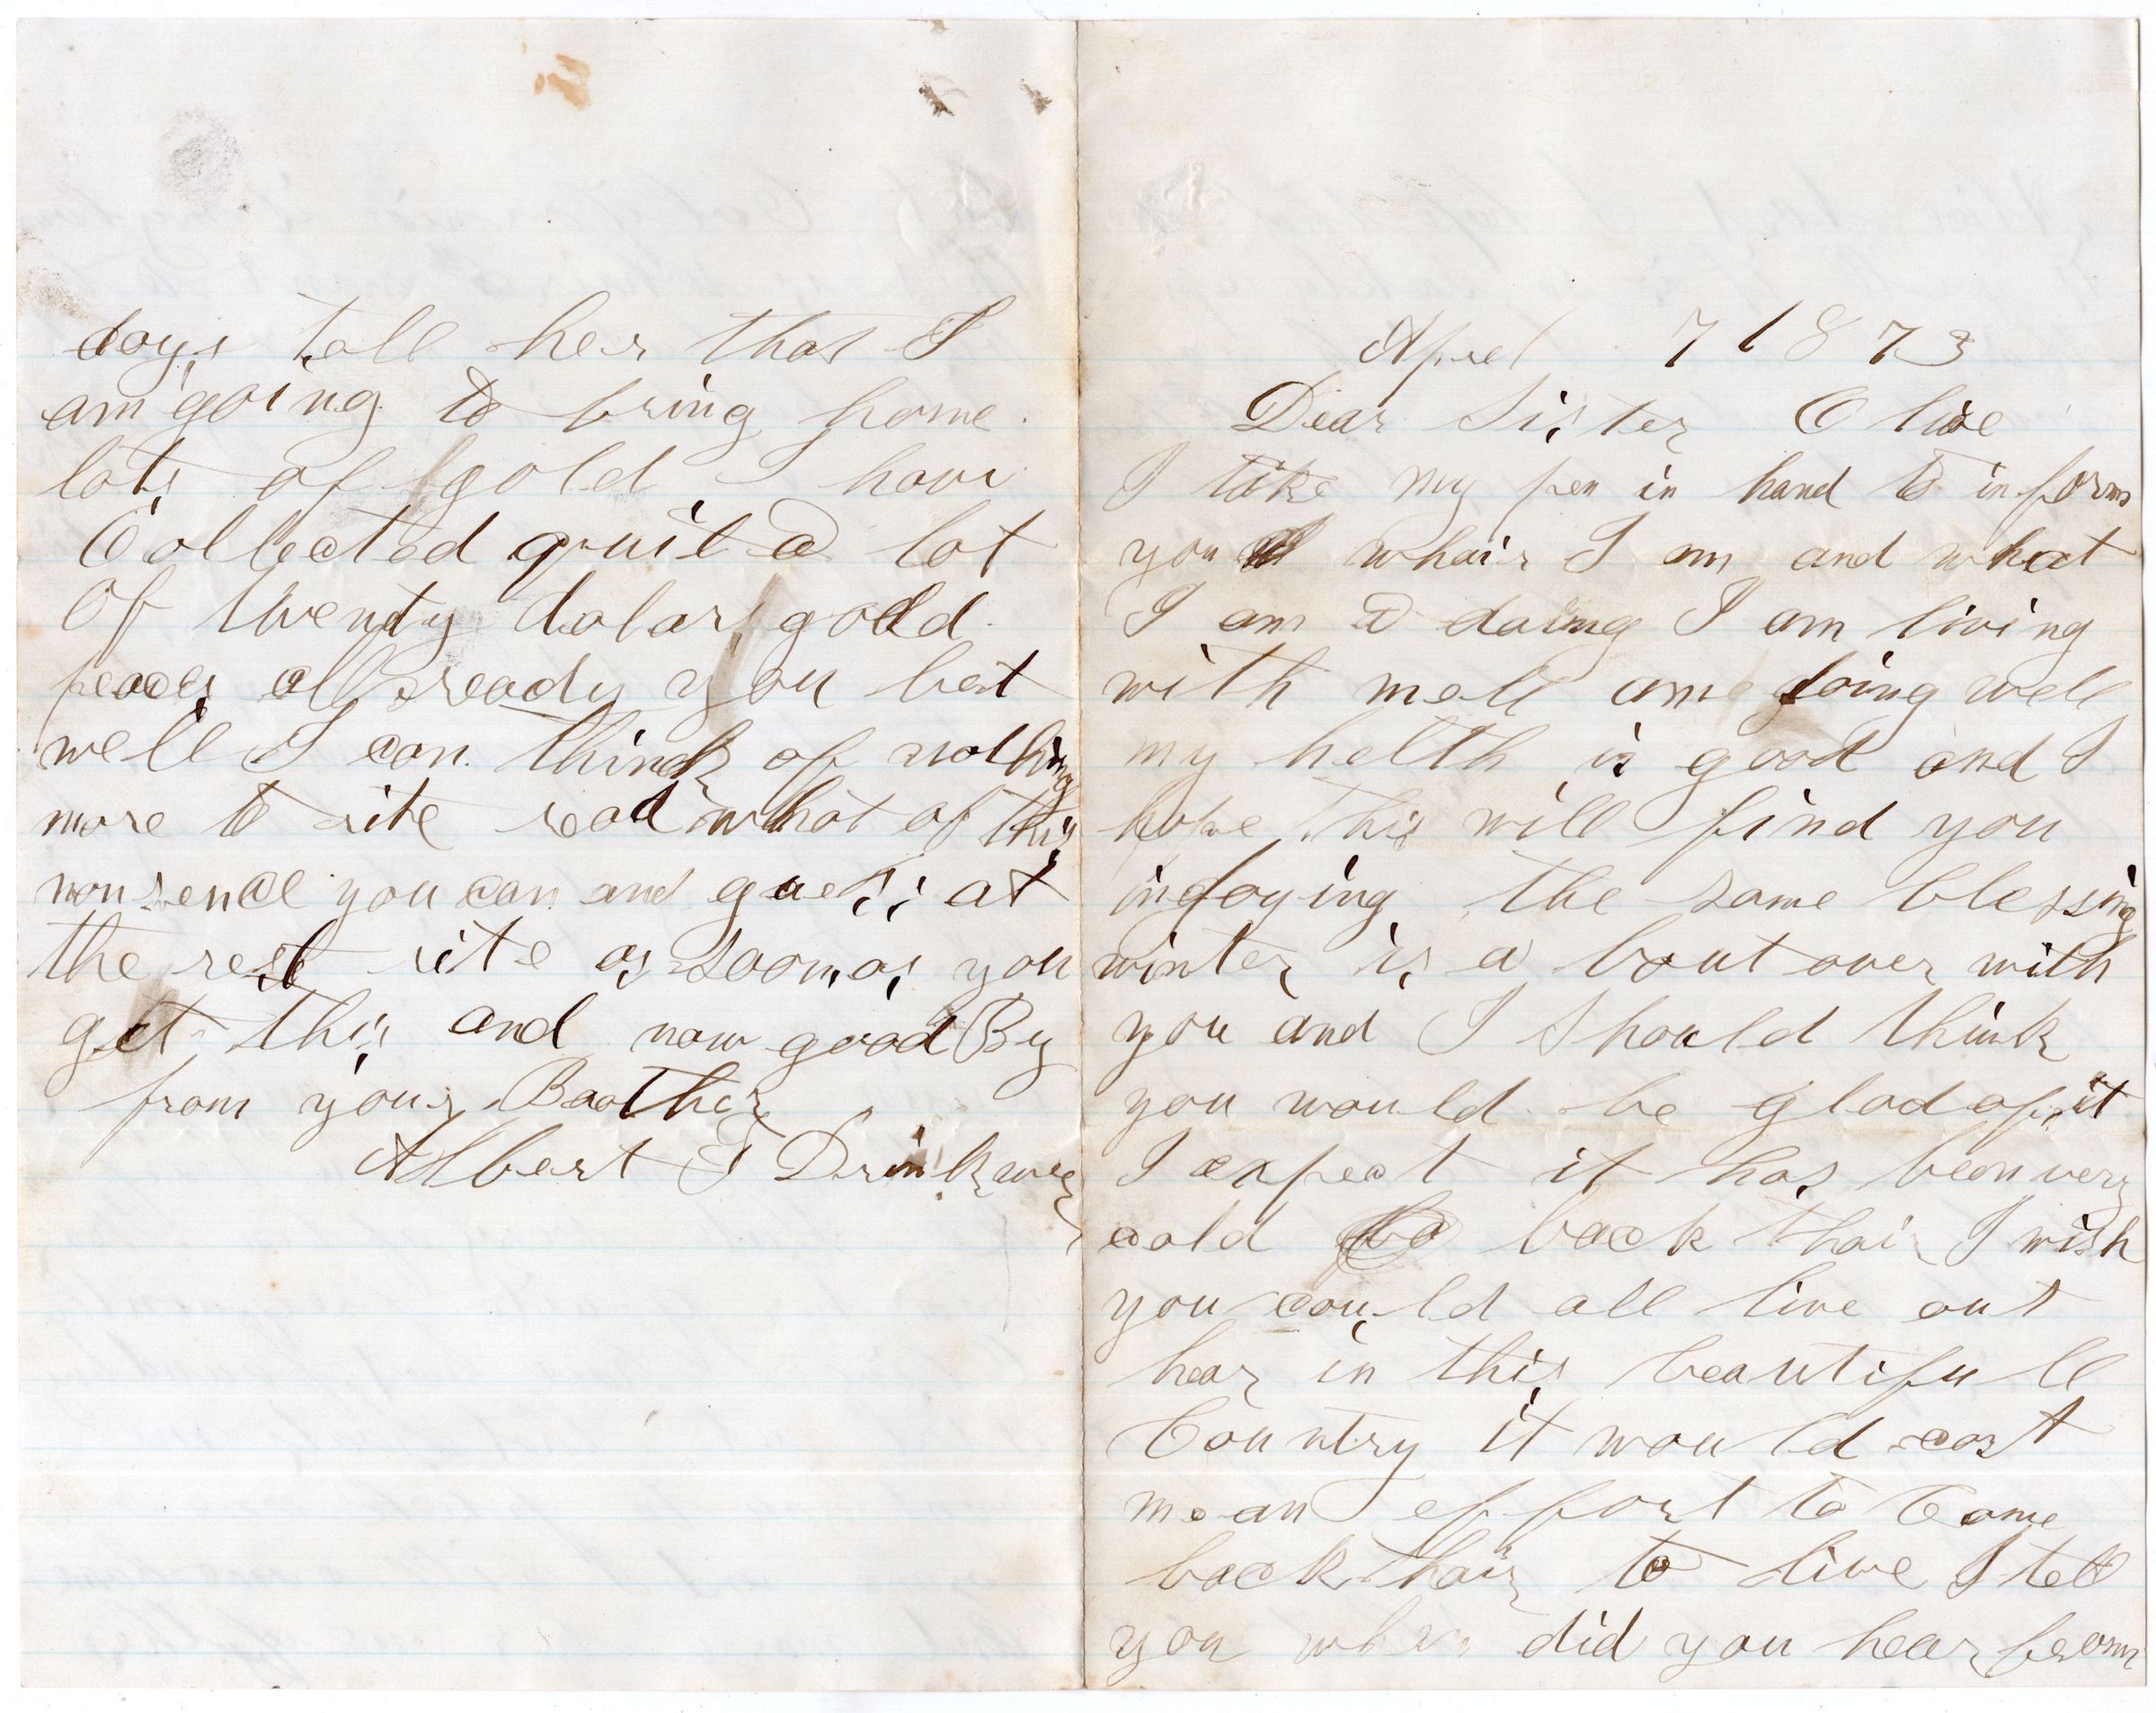 Aprel 7 1873
Dear Sister Olive
I take my pen in hand to inform
you whair I am and what
I am a doing I am living
with mell am doing well
my helth is good and I
hope this will find you
indoying the same blessing
winter is a bout over with
you and I Should think
you would be glad of it
I expect it has been very
cold back thair I wish
you could all live out
hear in this beautifull
Country it would cost
me an effort to Come
back thair to live I tell
you when did you hear from
days tell her that I
am going to bring home
lots of gold I have
Collected quite a lot
Of twenty dolar gold
peaces all ready you bet
well I can think of nothing
more to rite read what of this
nonsence you can and guess at
the rest rite as soon as you
get this and now good By
from your Brother
Albert F Drinkwer